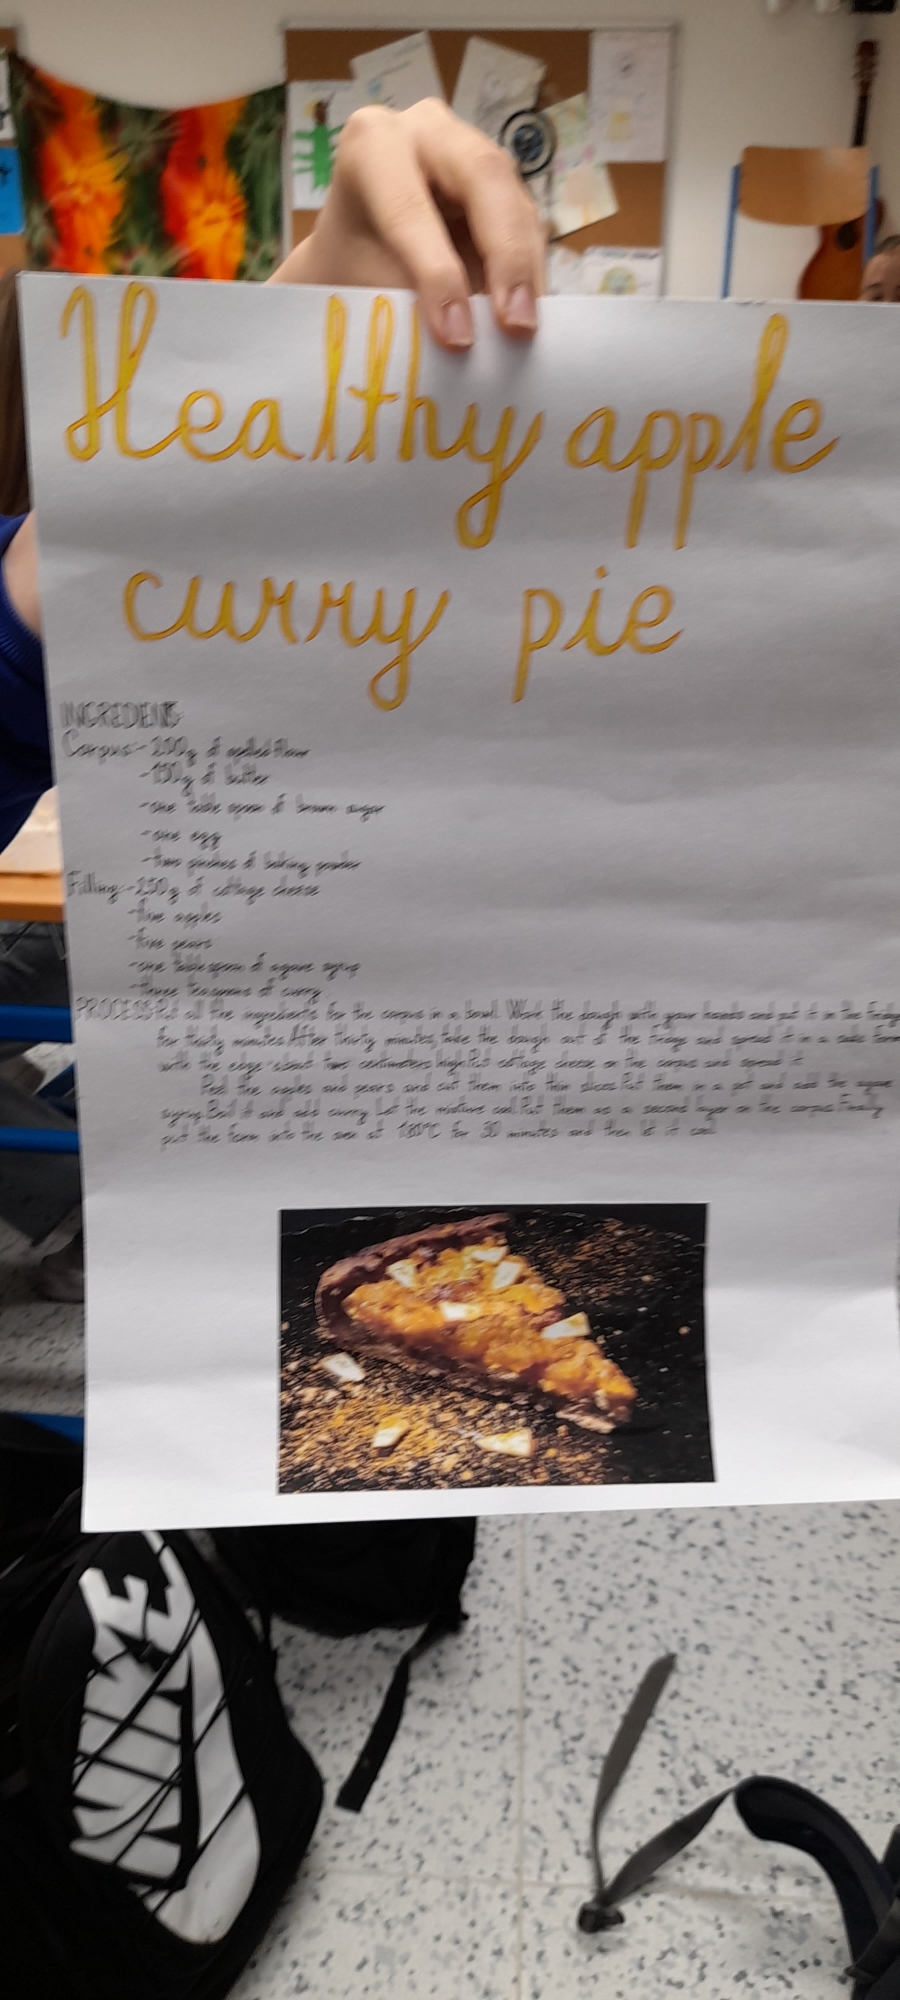 Healthy apple
curry pie
INGREDIENTS
Corpus:-200g of spelled flour
-150g of butter
-one table spoon of brown sugar
-one egg
-two pinches of baking powder
Filling:-250g of cottage cheese
-five apples
-five pears
-one tablespoon of agave syrup
-three teaspoons of curry
PROCESS:Put all the ingredients for the corpus in a bowl. Work the dough with your hands and put it in the fridge
for thirty minutes.After thirty minutes,take the dough out of the fridge and spread it in a cake form
with the edge about two centimeters high.Put cottage cheese on the corpus and spread it.
Peel the apples and pears and cut them into thin slices.Put them in a pot and add the agave
syrup.Boil it and add curry. Let the mixture cool.Put them as a second layer on the corpus.Finally
put the form into the oven at 180°C for 30 minutes and then let it cool.
NIKE